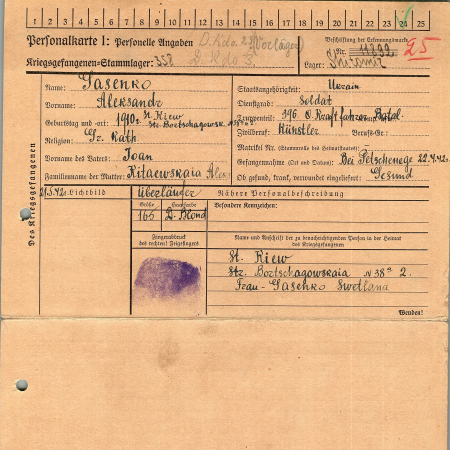 1 2 3 4 5 6 7 8 9 10 11 12 13 14 15 16 17 18 19 20 21 22 23 24 25
Personalkarte I: Personelle Angaben
Beschriftung der Erkennungsmarke
Kriegsgefangenen-Stammlager: 358
Nr. 11892
Lager: Shitomir
25
Des Kriegsgefangenen
Name: Gasenko
Staatsangehörigkeit: Ukrain
Vorname: Aleksandr
Dienstgrad: Soldat
Geburtstag und -ort: 1910. St. Kiew
Truppenteil: 396 O. Kraftfahrer Batal.
Str. Bortschagowsk. N 38
Zivilberuf: Künstler Berufs-Gr.:
Religion: Gr. Kath.
Matrikel Nr. (Stammrolle des Heimatstaates):
Vorname des Vaters: Ioan
Gefangennahme (Ort und Datum): Bei Petschenege 22.4.42.
Familienname der Mutter: Kitaewskaia
Ob gesund, krank, verwundet eingeliefert: Gesund
Lichtbild
Überländer
Nähere Personalbeschreibung
Größe
Haarfarbe
Besondere Kennzeichen:
165 D. Blond
Fingerabdruck
des rechten! Zeigefingers
Name und Anschrift der zu benachrichtigenden Person in der Heimat
des Kriegsgefangenen
St. Kiew
Str. Bortschagowskaia N 38ª 2.
Frau - Gasenko Swetlana
Wenden!